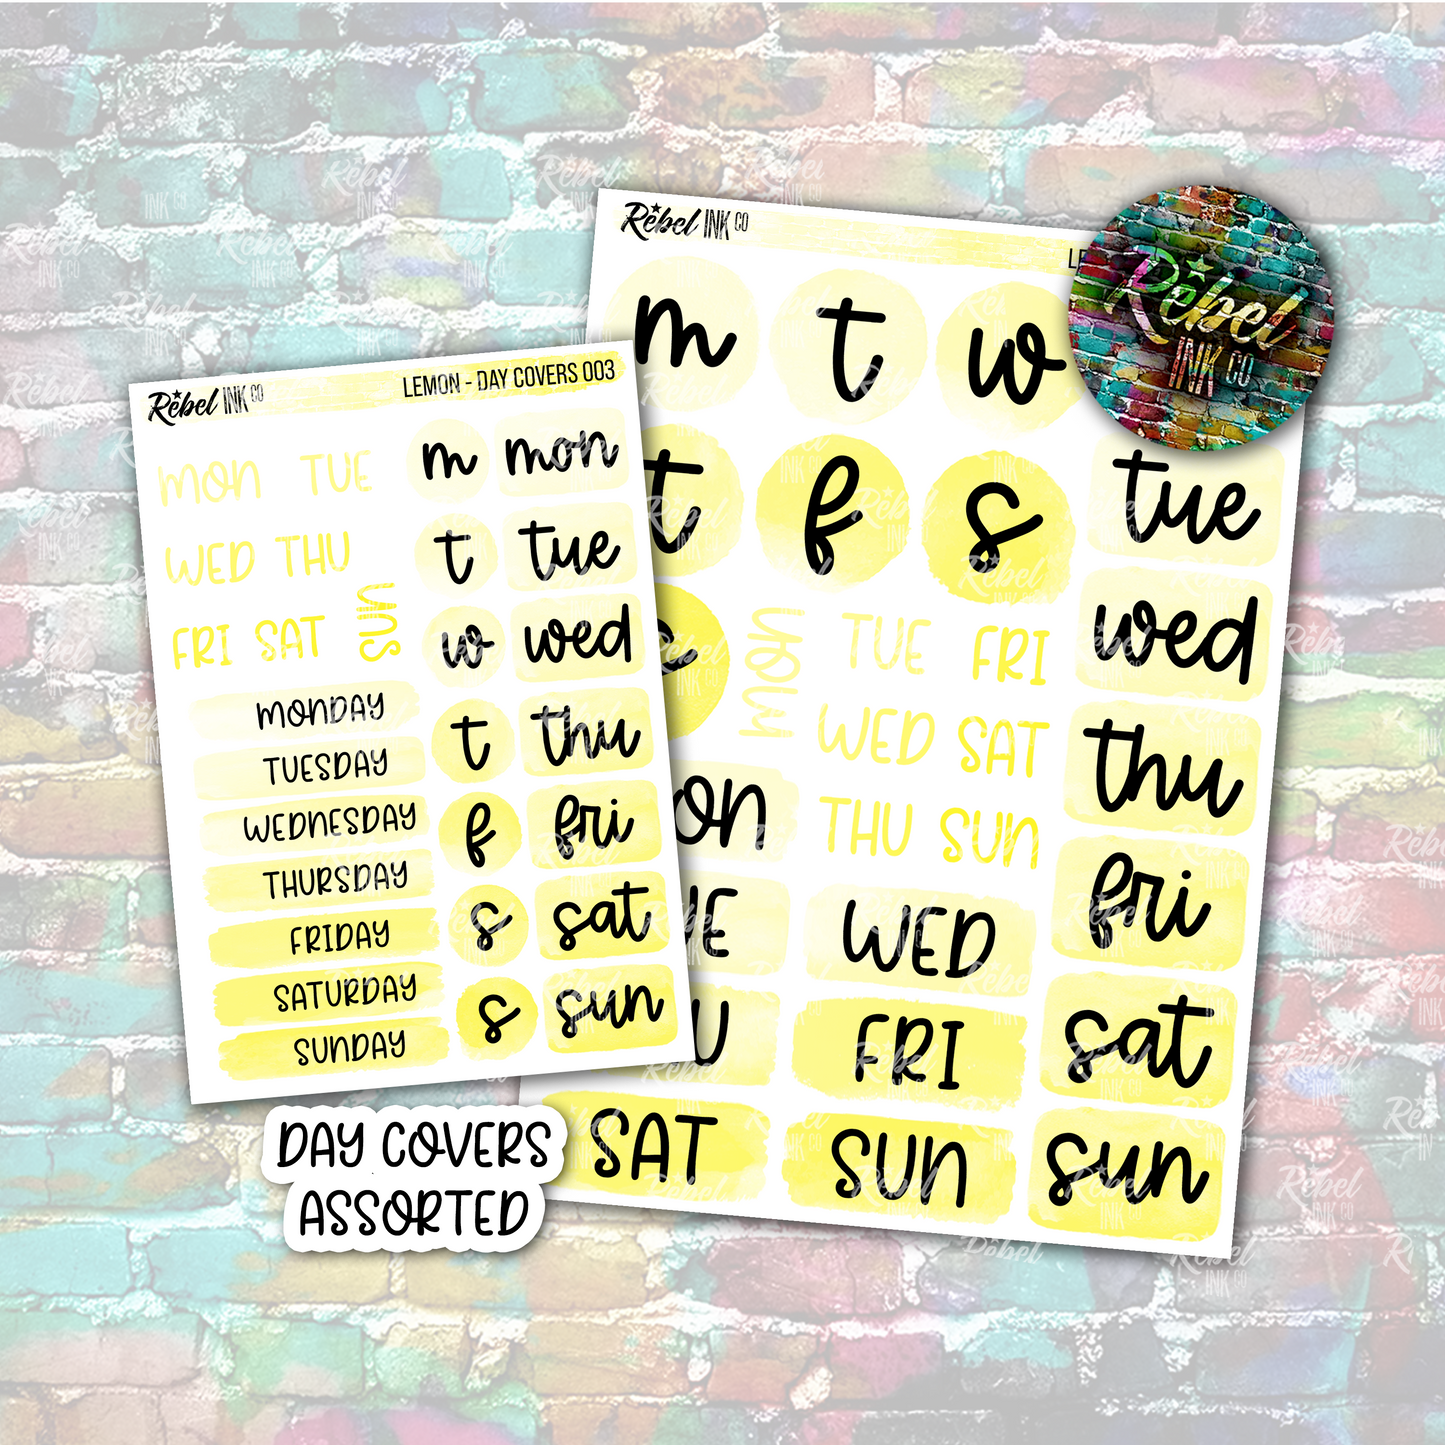 Rebel INK CO
LEMON - DAY COVERS 003
MON TUE
WED THU
FRI SAT
SUN
m mon
t tue
w wed
t thu
f fri
s sat
s sun
MONDAY
TUESDAY
WEDNESDAY
THURSDAY
FRIDAY
SATURDAY
SUNDAY
DAY COVERS
ASSORTED
Rebel INK CO
Rebel
INK CO
m t w
t f s
MON
TUE FRI
WED SAT
THU SUN
tue
wed
thu
fri
sat
sun
WED
FRI
SAT SUN